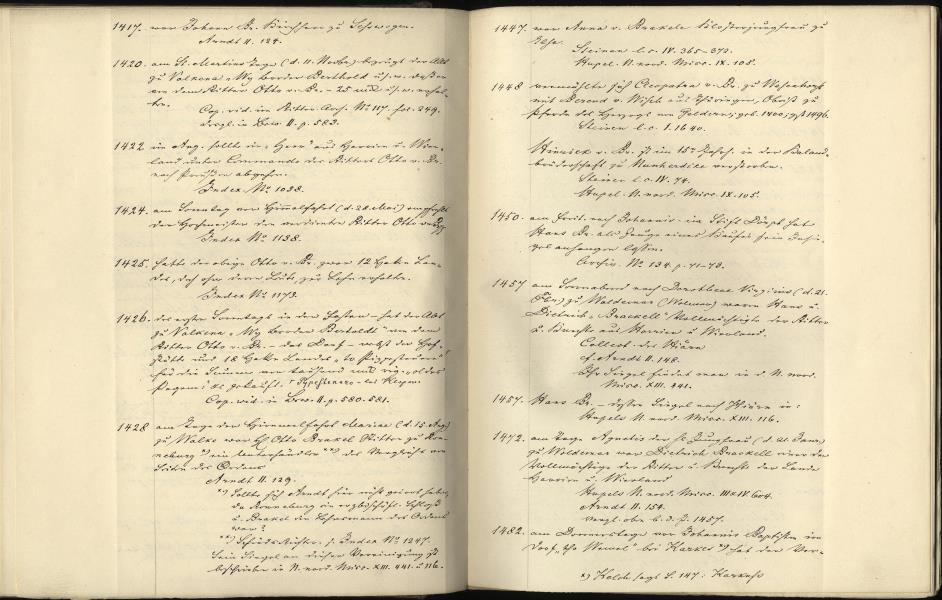 1417. war Johann Br. Kirchherr zu
Arndt II. 124.
1420. am St. Martins Tage (d. 11. Novbr.) bezeugt der Abt
zu Valkena „My broder Berthold u.s.w. daß er
von dem Ritter Otto v. Br. – 25 mk u.s.w. erhal-
ten.
Cop. vid. im Ritter Arch. No 117. fol. 249.
vergl. in Brow. II. p. 583.
1422 im Aug. sollte in „Heer" aus Harrien u. Wier-
land unter Commando des Ritters Otto v. Br.
nach Preußen abgehen.
Index No 1098.
1424. am Sonntag vor Himmelfahrt (d. 28. Mai) empfiehlt
der Hochmeister den Ritter Otto
Index No 1138.
1425. hatte der obige Otto v. Br. zwar 12 Haken Lan-
des, doch ohne Leute, zur Lehn erhalten.
Index No 1173.
1426. des ersten Sonntags in der Fasten – hat der Abt
zu Valkena „My broder Bertoldt" von dem
Ritter Otto v. Br. – das Dorf – nebst der Hof-
stätte und 18 Haken Landes „to
für die Summe von tausend mk rig.
gekauft.
Cop. vid. in Brow. II. p. 580-581.
1428 am Tage der Himmelfahrt Mariae (d. 15. Aug.)
zu Walke war H. Otto Brakel Ritter zu Kon-
neburg *) ein Unterhändler **) des Vergleichs von
Seiten des Ordens
Arndt II. 129.
*) Sollte sich Arndt hier nicht geirrt haben,
da Ronneburg ein erzbischöfl. Schloß
u. Brakel ein Lehnsmann des Ordens
war?
**) Schiedsrichter. s. Index No 1247.
Sein Siegel an dieser Vereinigung ist
beschrieben in N. nord. Misc. XIII. 441. u. 116.
1447. war Anna v. Brakele Klosterjungfrau zu
Steinen l.c. IV. 365-372.
Hupel N. nord. Misc. IX. 105.
1448 vermählte sich Cleopatra v. Br. zu
mit Berend v. aus Thüringen, Obrist zu
Pferde des Herzogs von Geldern; geb. 1400; gst 1496.
Steinen l.c. I. 1640.
Hinrick v. Br. ist im 15ten Jahrh. in der Kaland-
bruderschaft zu verstorben.
Steinen l.c. IV. 74.
Hupel. N. nord. Misc. IX. 105.
1450. am Freit. nach Johannis. im Stift Dörpt hat
Hans Br. als Zeuge eines Kaufes sein Insie-
gel anhangen lassen.
Archiv. No 134. p. 71-73.
1457 am Sonnabend nach Dorotheae Virginis (d. 21.
Fbr.) zu Woldemar (Wolmar) waren Hans u.
Dietrich „Brackell" Vollmächtigte der Ritter
u. Knechte aus Harrien u. Wierland.
Collect. des Hiärn
cf. Arndt II. 148.
Ihr Siegel findet man in d. N. nord.
Misc. XIII. 441.
1457. Hans Br. – dessen Siegel nach Hiärn in:
Hupels N. nord. Misc. XIII. 116.
1472. am Tage Agnetis der h. Jungfrau (d. 21 Janr.)
zu Woldemar war Dietrich Brackell einer der
Vollmächtige der Ritter u. Knechte der Lande
Harrien u. Wierland
Hupels N. nord. Misc. III u IV. 604.
Arndt II. 154.
vergl. oben b. d. J. 1457.
1482. am Donnerstage vor Johannis Baptisten im
Dorf „tho Wemel" bei Karkes *) hat der Vor-
*) Kelch sagt S. 147: Karkuss